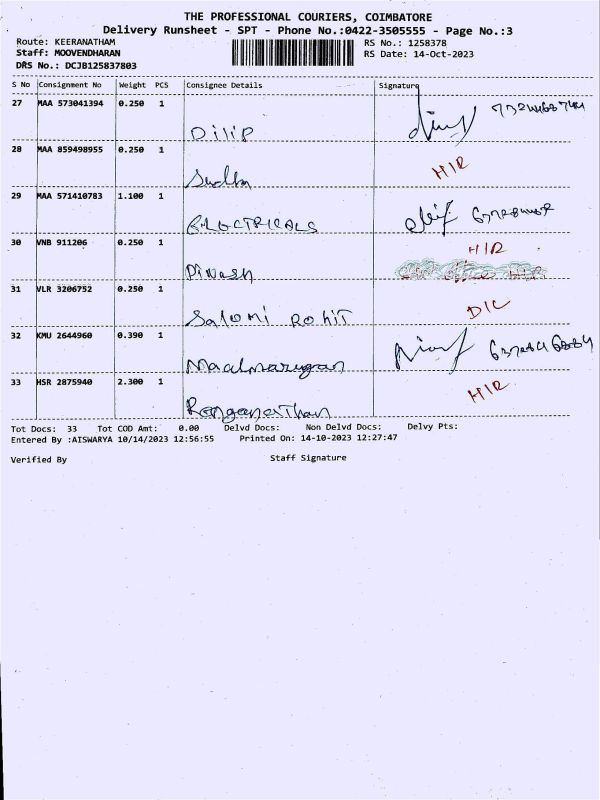 THE PROFESSIONAL COURIERS, COIMBATORE
Delivery Runsheet - SPT - Phone No.:0422-3505555 - Page No.:3
Route: KEERANATHAM RS No.: 1258378
Staff: MOOVENDHARAN RS Date: 14-Oct-2023
DRS No.: DCJB125837803
S No Consignment No Weight PCS Consignee Details Signature
27 MAA 573041394 0.250 1
Dilip
28 MAA 859498955 0.250 1 HIR
Sudha
29 MAA 571410783 1.100 1
ELECTRICALS
30 VNB 911206 0.250 1 HIR
Dinesh
31 VLR 3206752 0.250 1 DIC
Salomi Rohit
32 KMU 2644960 0.390 1
33 HSR 2875940 2.300 1 HIR
Ranganathan
Tot Docs: 33 Tot COD Amt: 0.00 Delvd Docs: Non Delvd Docs: Delvy Pts:
Entered By :AISWARYA 10/14/2023 12:56:55 Printed On: 14-10-2023 12:27:47
Verified By Staff Signature